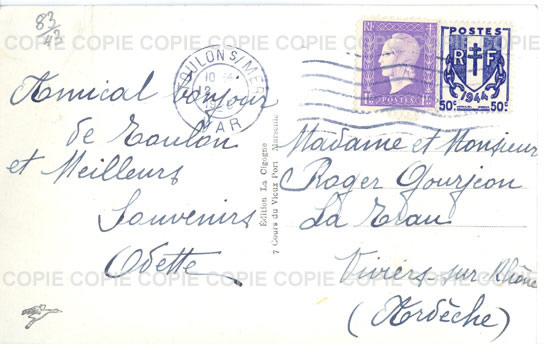 83/43
Amical bonjour
de Toulon
et Meilleurs
Souvenirs
Odette
TOULON S/MER
10
12
VAR
RF
POSTES
POSTES
RF
1944
50c 50c
Édition La Cigogne
7 Cours du Vieux Port Marseille
Madame et Monsieur
Roger Gourjeon
La Crau
Viviers-sur-Rhône
(Ardèche)
COPIE COPIE COPIE COPIE COPIE COPIE COPIE
COPIE COPIE COPIE COPIE COPIE COPIE COPIE
COPIE COPIE COPIE COPIE COPIE COPIE COPIE